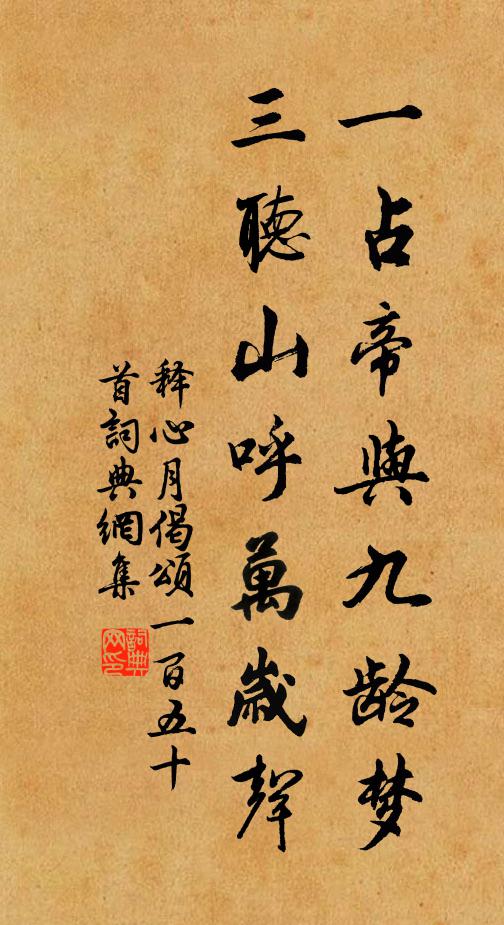 一占帝與九龄梦
三聽山呼萬歲聲
释心月偈頌一百五十
首詞典網集
詞典
网印